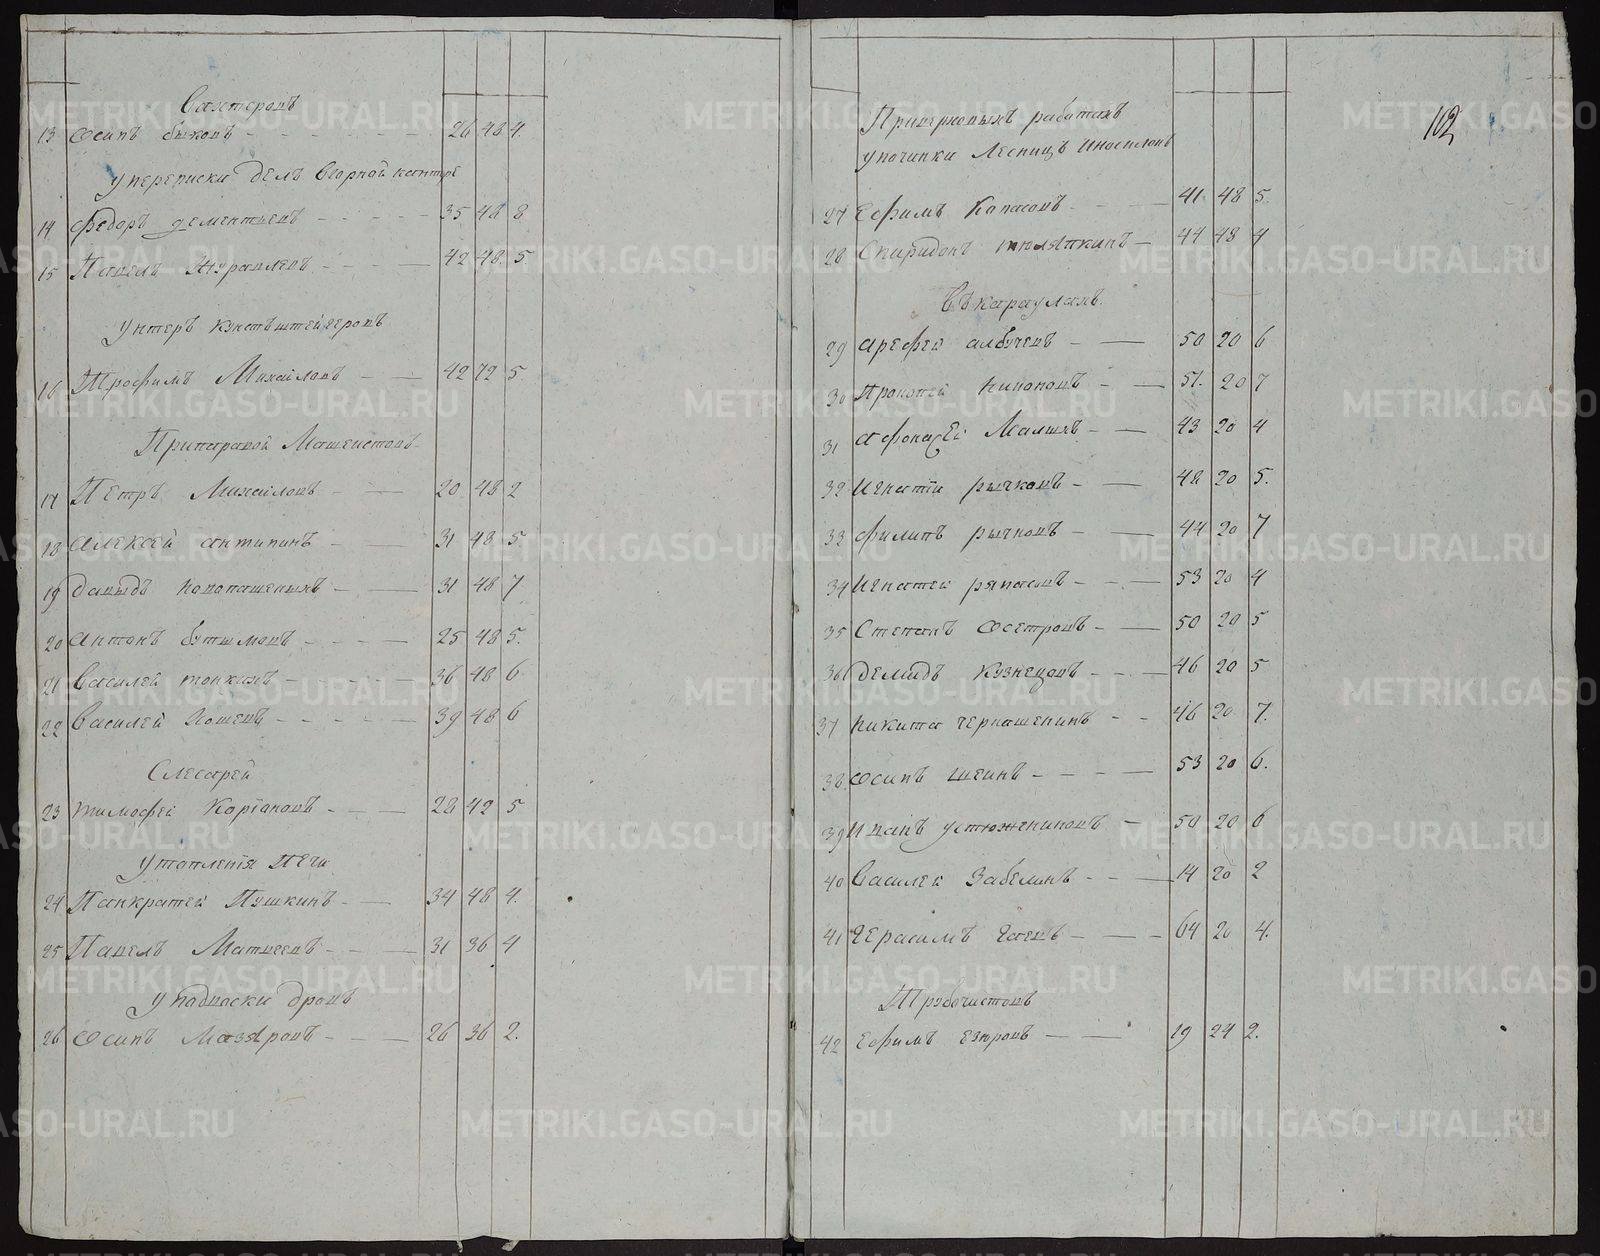 Вахтеровъ
13 Осипъ Быковъ 26 48 4.
у переписки делъ вгорной канторе
14 Федоръ Дементьевъ 35 48 8
15 Павелъ Журавлевъ 42 48 5
Унтеръ Кунстъштейгеровъ
16 Трофимъ Михайловъ 42 72 5
Припаравой Машенистовъ
17 Петръ Михайловъ 20 48 2
18 Алексей Антипинъ 31 48 5
19 Давыдъ Новопашеныхъ 31 48 7
20 Антонъ Бутымовъ 25 48 5.
21 Василей Тонкихъ 36 48 6
22 Василей 39 48 6
Слесарей
23 Тимофей 28 42 5
утопления Печи
24 Панкратей Пушкинъ 34 48 4.
25 Павелъ Матвеевъ 31 36 4
у дровъ
26 Осипъ 26 36 2.
102
работахъ
упочинки Лесницъ иносилокъ
27 Ефимъ 41 48 5.
28 Спиридонъ 44 48 4
Въкараулахъ
29 Арефей 50 20 6
30 Прокопей 51. 20 7
31 Афонасей Малыхъ 43 20 4
32 Игнатій Рычковъ 48 20 5.
33 Филипъ Рычковъ 44 20 7
34 Игнатей Рякасовъ 53 20 4
35 Степанъ Осетровъ 50 20 5
36 Демидъ Кузнецовъ 46 20 5
37 Никита 46 20 7.
38 Осипъ Шеинъ 53 20 6.
39 Иванъ Устюжениновъ 50 20 6
40 Василей Забелинъ 14 20 2
41 Герасимъ Гаевъ 64 20 4.
Трубочистовъ
42 Ефимъ 19 24 2.
METRIKI.GASO-URAL.RU